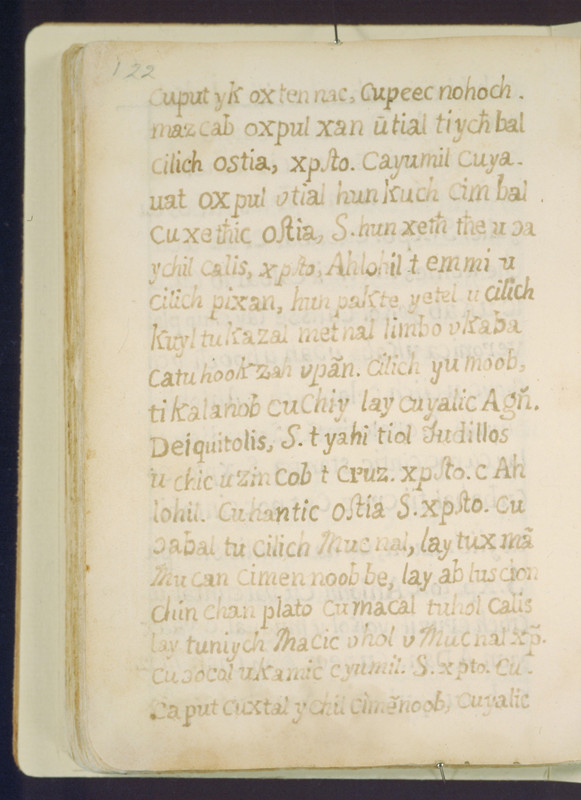 122
cuput yk oxtennac, Cupeec nohoch.
mazcab oxpul xan ũtial tiych bal
cilich ostia, xpsto. Cayumil Cuya.
uat oxpul vtial hunkuch Cimbal
Cuxethic ostia, S. hun xeth the u ɔa
ychil calis, xpsto, Ahlohil t emmi u
cilich pixan, hun pakte yetel u cilich
kuyl tukazal metnal limbo vkaba
catu hookzah vpãn. cilich yumoob,
ti kalanob cuChiy lay cuyalic Agñ.
Deiquitolis, S. tyahi tiol Judillos
u chic uzincob t cruz. xpsto. c Ah
lohil. Cuhantic ostia S. xpsto. Cu
ɔabal tu cilich Mucnal, lay tuxmã
Mucan Cimennoob be, lay abluscion
chin chan plato cumacal tuhol calis
lay tuniych Macic vhol v Mucnal xp̃.
Cuɔocol ukamic cyumil. S. xpto. Cu.
Caput cuxtal ychil cimẽnoob, Cuyalic